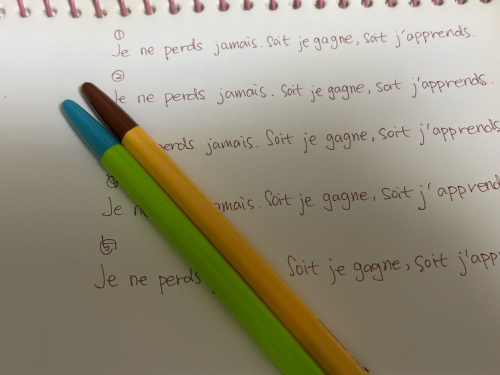 ①
Je ne perds jamais. Soit je gagne, soit j'apprends.
②
Je ne perds jamais. Soit je gagne, soit j'apprends.
perds jamais. Soit je gagne, soit j'apprends
④
Je jamais. Soit je gagne, soit j'apprend
⑤
Je ne perds Soit je gagne, soit j'app